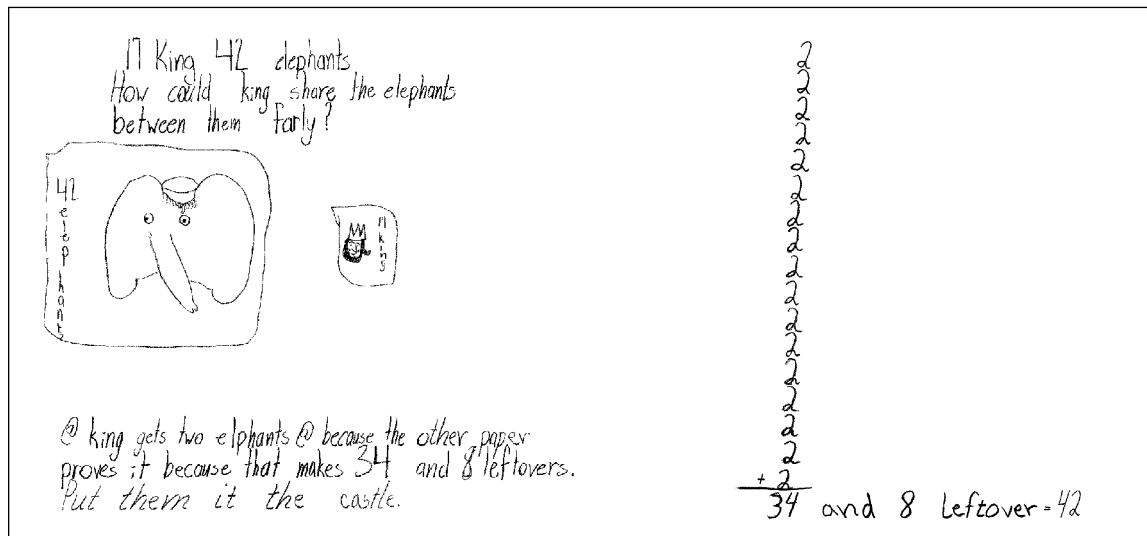 17 King 42 elephants
How could king share the elephants
between them farly?
42 elephants
17 kings
@ king gets two elphants @ because the other paper
proves it because that makes 34 and 8 leftovers.
Put them it the castle.
2
2
2
2
2
2
2
2
2
2
2
2
2
2
2
2
+ 2
34 and 8 leftover = 42